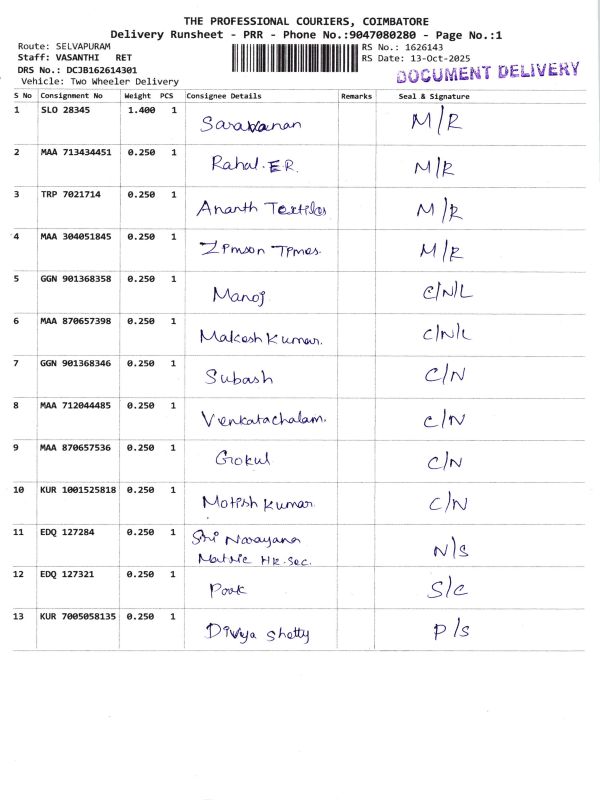 THE PROFESSIONAL COURIERS, COIMBATORE
Delivery Runsheet - PRR - Phone No.:9047080280 - Page No.:1
Route: SELVAPURAM
Staff: VASANTHI RET
DRS No.: DCJB162614301
Vehicle: Two Wheeler Delivery
RS No.: 1626143
RS Date: 13-Oct-2025
DOCUMENT DELIVERY
S No Consignment No Weight PCS Consignee Details Remarks Seal & Signature
1 SLO 28345 1.400 1 Saravanan M/R
2 MAA 713434451 0.250 1 Rahal.E.R. M/R
3 TRP 7021714 0.250 1 Ananth Textiles M/R
4 MAA 304051845 0.250 1 M/R
5 GGN 901368358 0.250 1 Manoj C/N/L
6 MAA 870657398 0.250 1 Makesh Kumar. C/N/L
7 GGN 901368346 0.250 1 Subash C/N
8 MAA 712044485 0.250 1 Venkatachalam. C/N
9 MAA 870657536 0.250 1 Gokul C/N
10 KUR 1001525818 0.250 1 Motish Kumar C/N
11 EDQ 127284 0.250 1 Sri Narayana
Matric HR.Sec. N/S
12 EDQ 127321 0.250 1 S/C
13 KUR 7005058135 0.250 1 Divya Shetty P/S